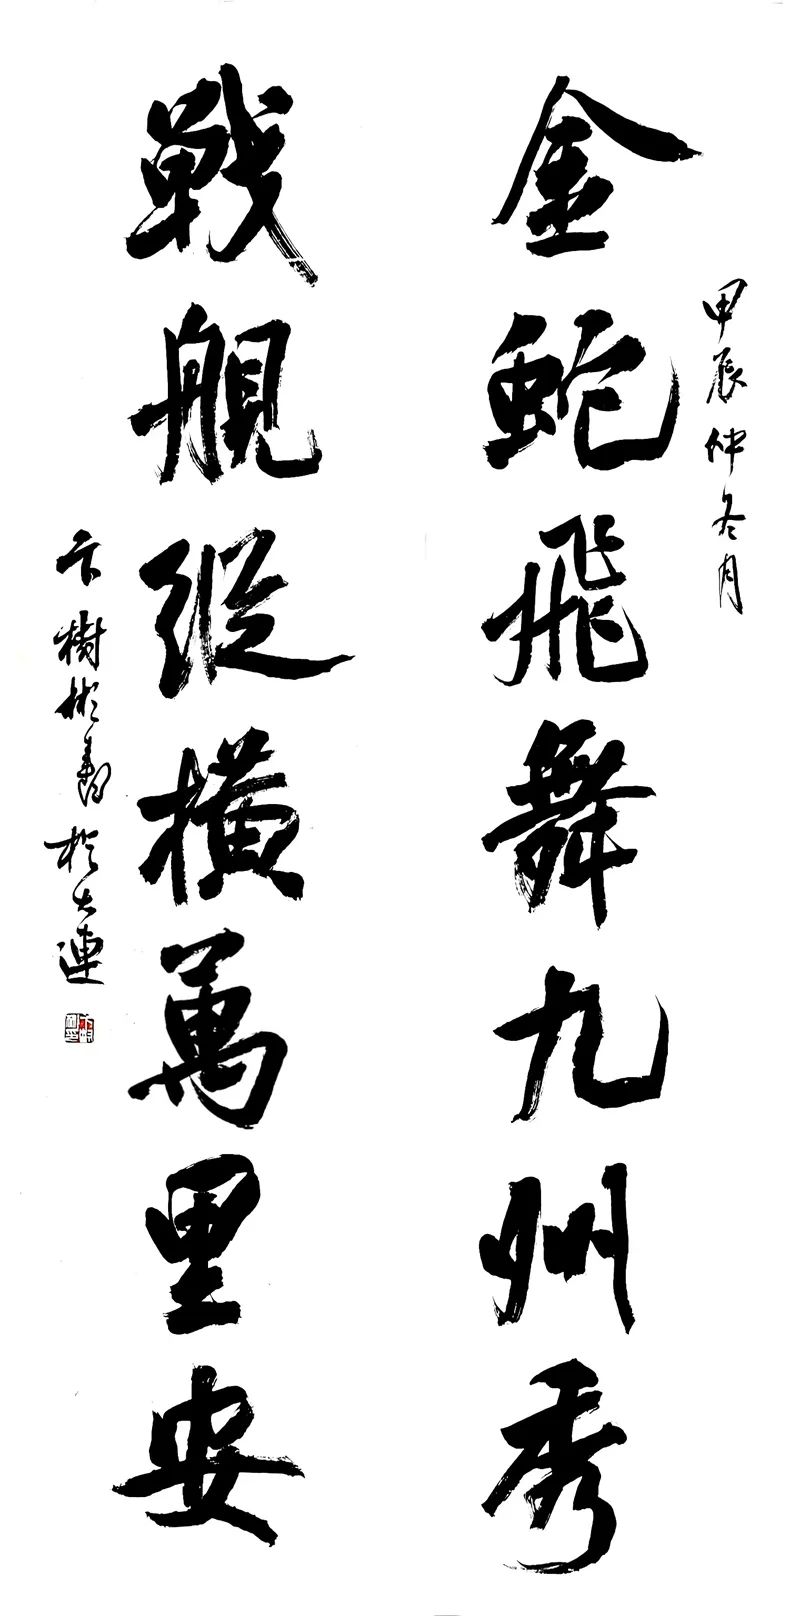 甲辰仲冬月
金蛇飛舞九州秀
戰舰纵橫萬里安
卞樹彬書於大連